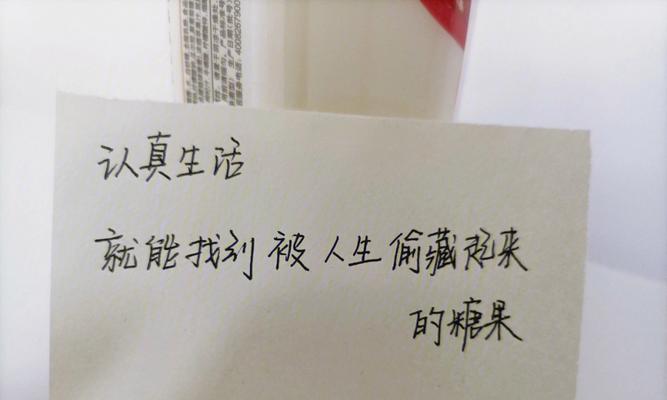 认真生活
就能找到被人生偷藏起来
的糖果